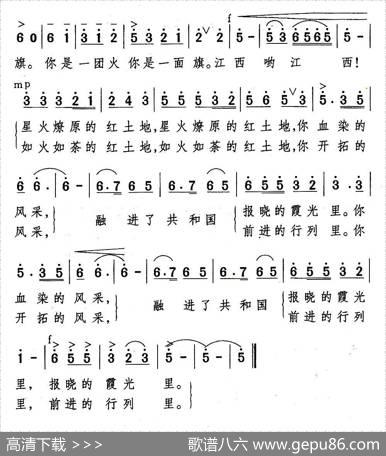 f
6 0 | 6 1 | 3 1 1 2 | 5 3 2 1 | 2 2 | 5 - | 5 3 6 5 6 5 | 5 - |
旗。 你 是 一 团 火 你 是 一 面 旗。 江 西 哟 江 西!
mp
3 3 3 2 1 | 2 4 3 | 5 5 5 3 2 | 5 6 5 3 | 5 . 3 5 |
星 火 燎 原 的 红 土 地, 星 火 燎 原 的 红 土 地, 你 血 染 的
如 火 如 荼 的 红 土 地, 如 火 如 荼 的 红 土 地, 你 开 拓 的
6 6 . | 6 - | 6 . 7 6 5 | 6 . 7 6 5 | 6 5 5 3 2 | 3 . 3 |
风 采, 融 进 了 共 和 国 报 晓 的 霞 光 里。 你
风 采, 前 进 的 行 列 里。 你
5 . 3 5 | 6 6 . | 6 - | 6 . 7 6 5 | 6 . 7 6 5 | 6 5 5 3 2 |
血 染 的 风 采, 融 进 了 共 和 国 报 晓 的 霞 光
开 拓 的 风 采, 前 进 的 行 列
f
1 - | 6 5 5 | 3 2 3 | 5 - | 5 - | 5 ‖
里, 报 晓 的 霞 光 里。
里, 前 进 的 行 列 里。
高清下载 >>> 歌谱八六 www.gepu86.com